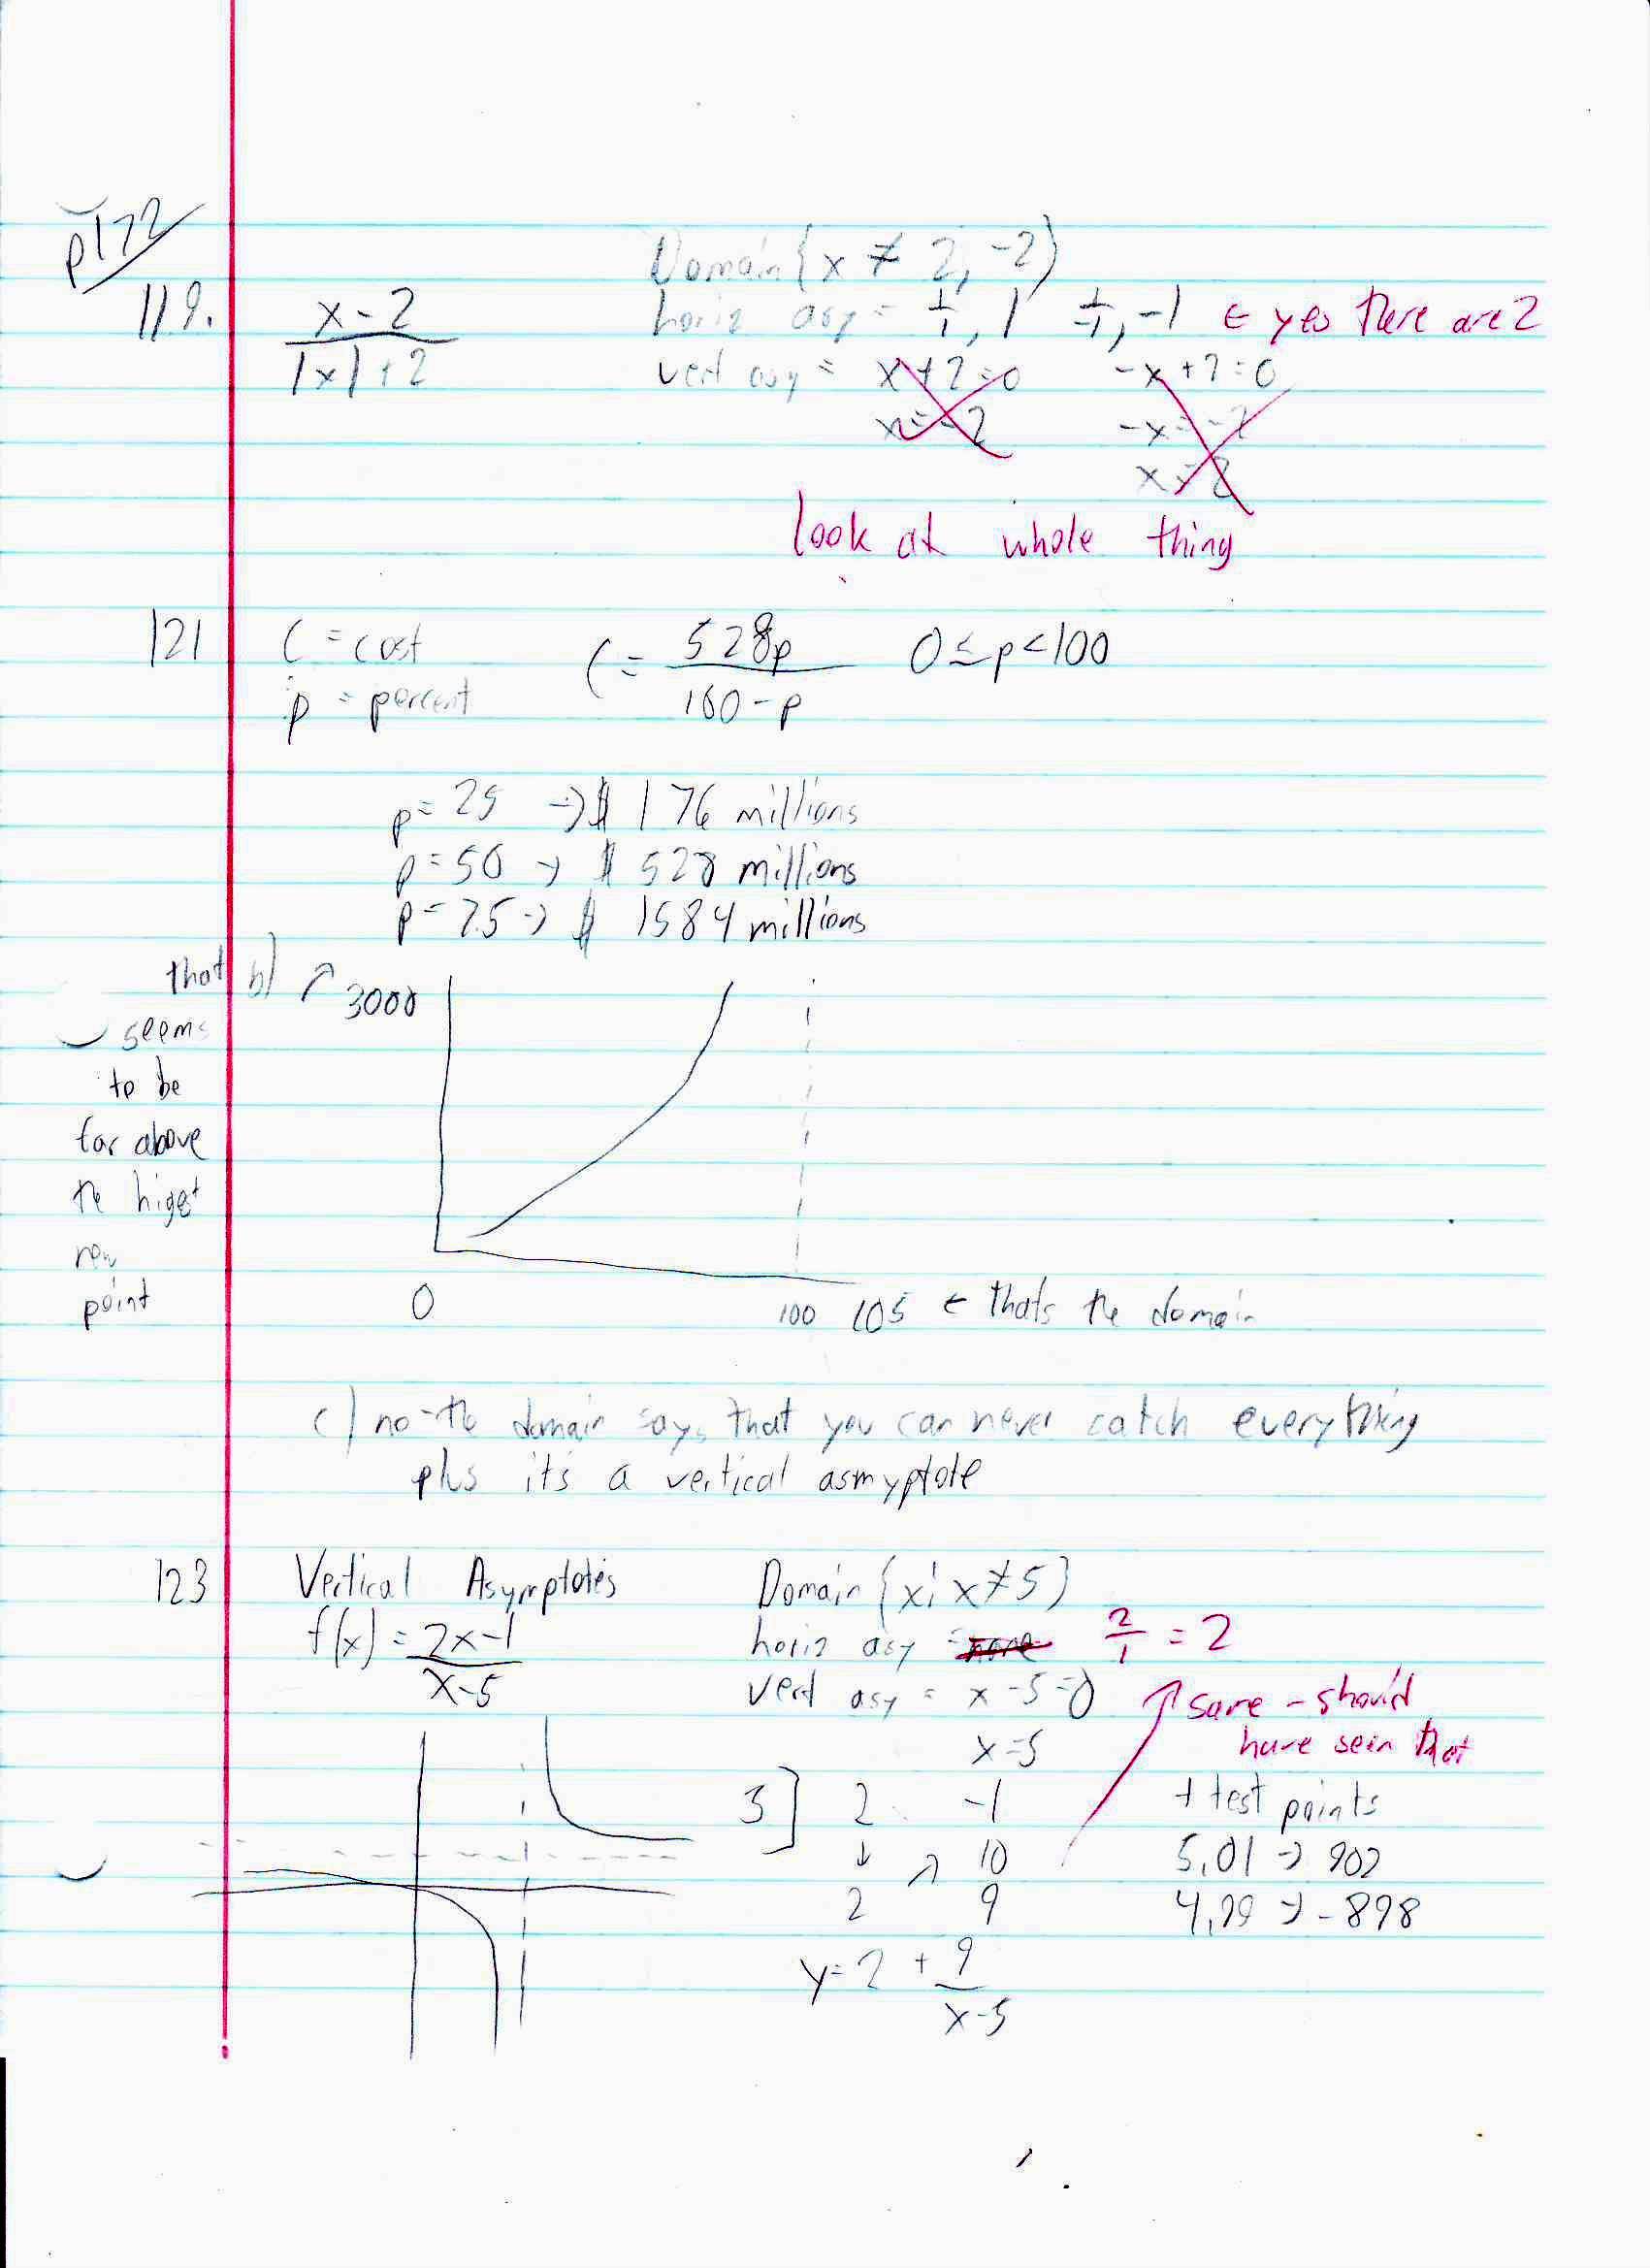 p172
119. x-2 / |x|+2
Domain {x ≠ 2, -2}
horiz asy = 1/1, 1 1/-1, -1 ← yes there are 2
vert asy = x+2=0 -x+2=0
x=-2 -x=-2
x=2
look at whole thing
121 C = cost C = 528p / 100-p 0≤p<100
p = percent
p=25 → $ 176 millions
p=50 → $ 528 millions
p=75 → $ 1584 millions
b) 3000
that
seems
to be
far above
the higest
point
0 100 105 ← thats the domain
c) no-the domain says that you can never catch everything
plus it's a vertical asmyptote
123 Vertical Asymptotes
f(x) = 2x-1 / x-5
Domain {x: x≠5}
horiz asy = none 2/1 = 2
vert asy = x-5=0
x=5
same - should
have seen that
5] 2 -1
↓ ↗ 10
2 9
y=2 + 9 / x-5
+ test points
5.01 → 902
4.99 → -898